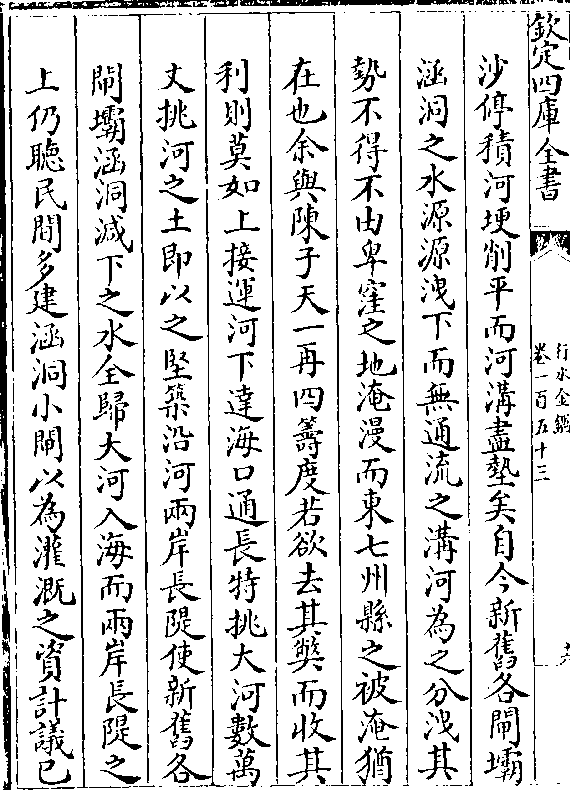 欽定四庫全書
行水金鑑
卷一百五十三
沙停積河埂削平而河溝盡墊矣自今新舊各閘壩
涵洞之水源源洩下而無通流之溝河為之分洩其
勢不得不由卑窪之地淹漫而東七州縣之被淹猶
在也余與陳子天一再四籌度若欲去其獘而收其
利則莫如上接運河下達海口通長特挑大河數萬
丈挑河之土即以之堅築沿河兩岸長隄使新舊各
閘壩涵洞減下之水全歸大河入海而兩岸長隄之
上仍聽民間多建涵洞小閘以為灌溉之資計議已